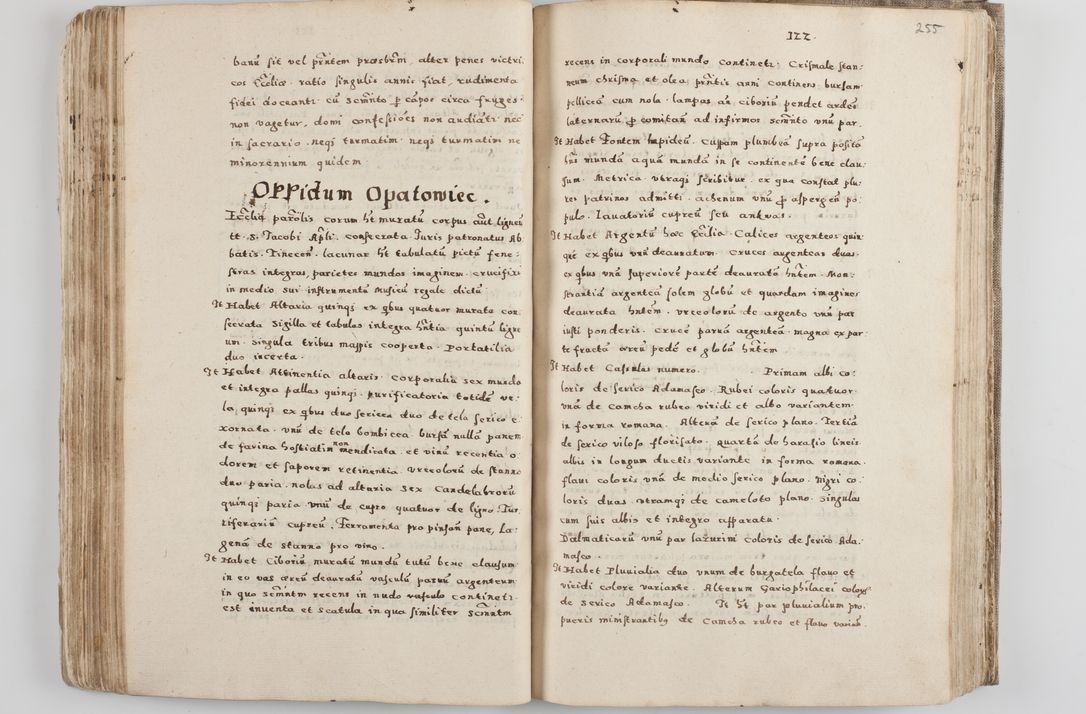 banū sit vel p̄ntem præsbrm, alter penes victri
cos Ecclīæ ratio singulis annis fiat, rudimenta
fidei doceanti cū Scm̄nto p cāpos circa fruges
non vagetur, domi confessioēs non audiāti nec
in sacrario neq3 turmatim neq3 turmatim ne
minorennium quidem
Oppidum Opatowiec.
Ecclīa parōlis eorum ht muratū corpus aut ligneū
tt. S. Jacobi Apli. consecrata Juris patronatus Ab
batis Tinecen̄. lacunar ht tabulatū pictū fene:
stras integras, parietes mundos imaginem crucifixi
in medio sui instrumentū Musicū regale dictū
It Habet Altaria quinq3 ex qbus quatuor murata con
secrata Sigilla et tabulas integra hn̄tia quintū ligne
um. Singula tribus mappis cooperta. Portatilia
duo incerta.
It Habet Attinentia altaris. Corporalia sex munda
et integra pallas quinq3. Purificatoria totidē ve
la quinq3 ex qbus duo sericea duo de tela serico e
xornata. vnū de tela bombicea. bursā nullā panem
de farina hostialim non mendicata. et vinū recentia o
dorem et saporem retinentia. vrceolorū de stanno
duo paria. nolas ad altaria Sex Candelabrorū
quinq3 paria vnū de cupro quatuor de ligno. Tur
riferariū cupreū. Ferramenta pro pinsen̄ pane, La
genā de stanno pro vino.
It Habet Ciboriū muratū mundū tutū bene clausum
in eo vas æreū deauratū vasculū paruū argenteum
in quo scmn̄tm recens in nudo vasculo contineti
est inuenta et scatula in qua similiter scm̄ntm
122.
255
recens in corporali mundo contineti. Crismale stan:
neum chrisma et olea p̄ntis anni continens bursam
pelliceā cum nola. lampas an̄ ciboriū pendet ardēs
laternarū p comitan̄ ad infirmos scm̄nto vnū par
It Habet Fontem lapideū. Cuppam plumbeā supra positā
hn̄s mundā aquā mundā in se continentē bene clau
sum. Metrica vtraq3 scribitur ex qua constat plu
res patrinos admitti. achenum vnū p aspergen̄ po
pulo. Lauatoriū cupreū seu antwas.
It Habet Argentū hæc Ecclīa. Calices argenteos quin
que ex qbus vnū deauratum. Cruces argenteas duas
ex qbus vnā superiorē partē deauratā hn̄tem. Mon
strantiā argenteā solem globū et quasdam imagines
deaurata hn̄tem. vrceolorū de argento vnū par
iusti ponderis. Crucē paruā argenteā magna ex par
te fractā æreū pedē et globū hn̄tem
It Habet Casulas numero. Primam albi co
loris de serico Adamasco. Rubei coloris quatuor
vnā de camcha rubeo viridi et albo variantem
in forma romana. Alterā de serico plano. Tertiā
de serico viloso florisato. quartā de harasio lineis
albis in longum ductis variante in forma romana
flaui coloris vnā de medio serico plano. Nigri co
loris duas vtramq3 de cameloto plano. Singulas
cum suis albis et integro apparatu
Dalmaticarū vnū par lazurini coloris de serico Ada:
masco.
It Habet Pluuialia duo vnum de burgatela flauo et
viridi colore variante. Alterum Gariophilacei coloris
de serico Adamasco. It ht par pluuialium pro
pueris ministrantibus de Camcha rubeo et flauo varian̄